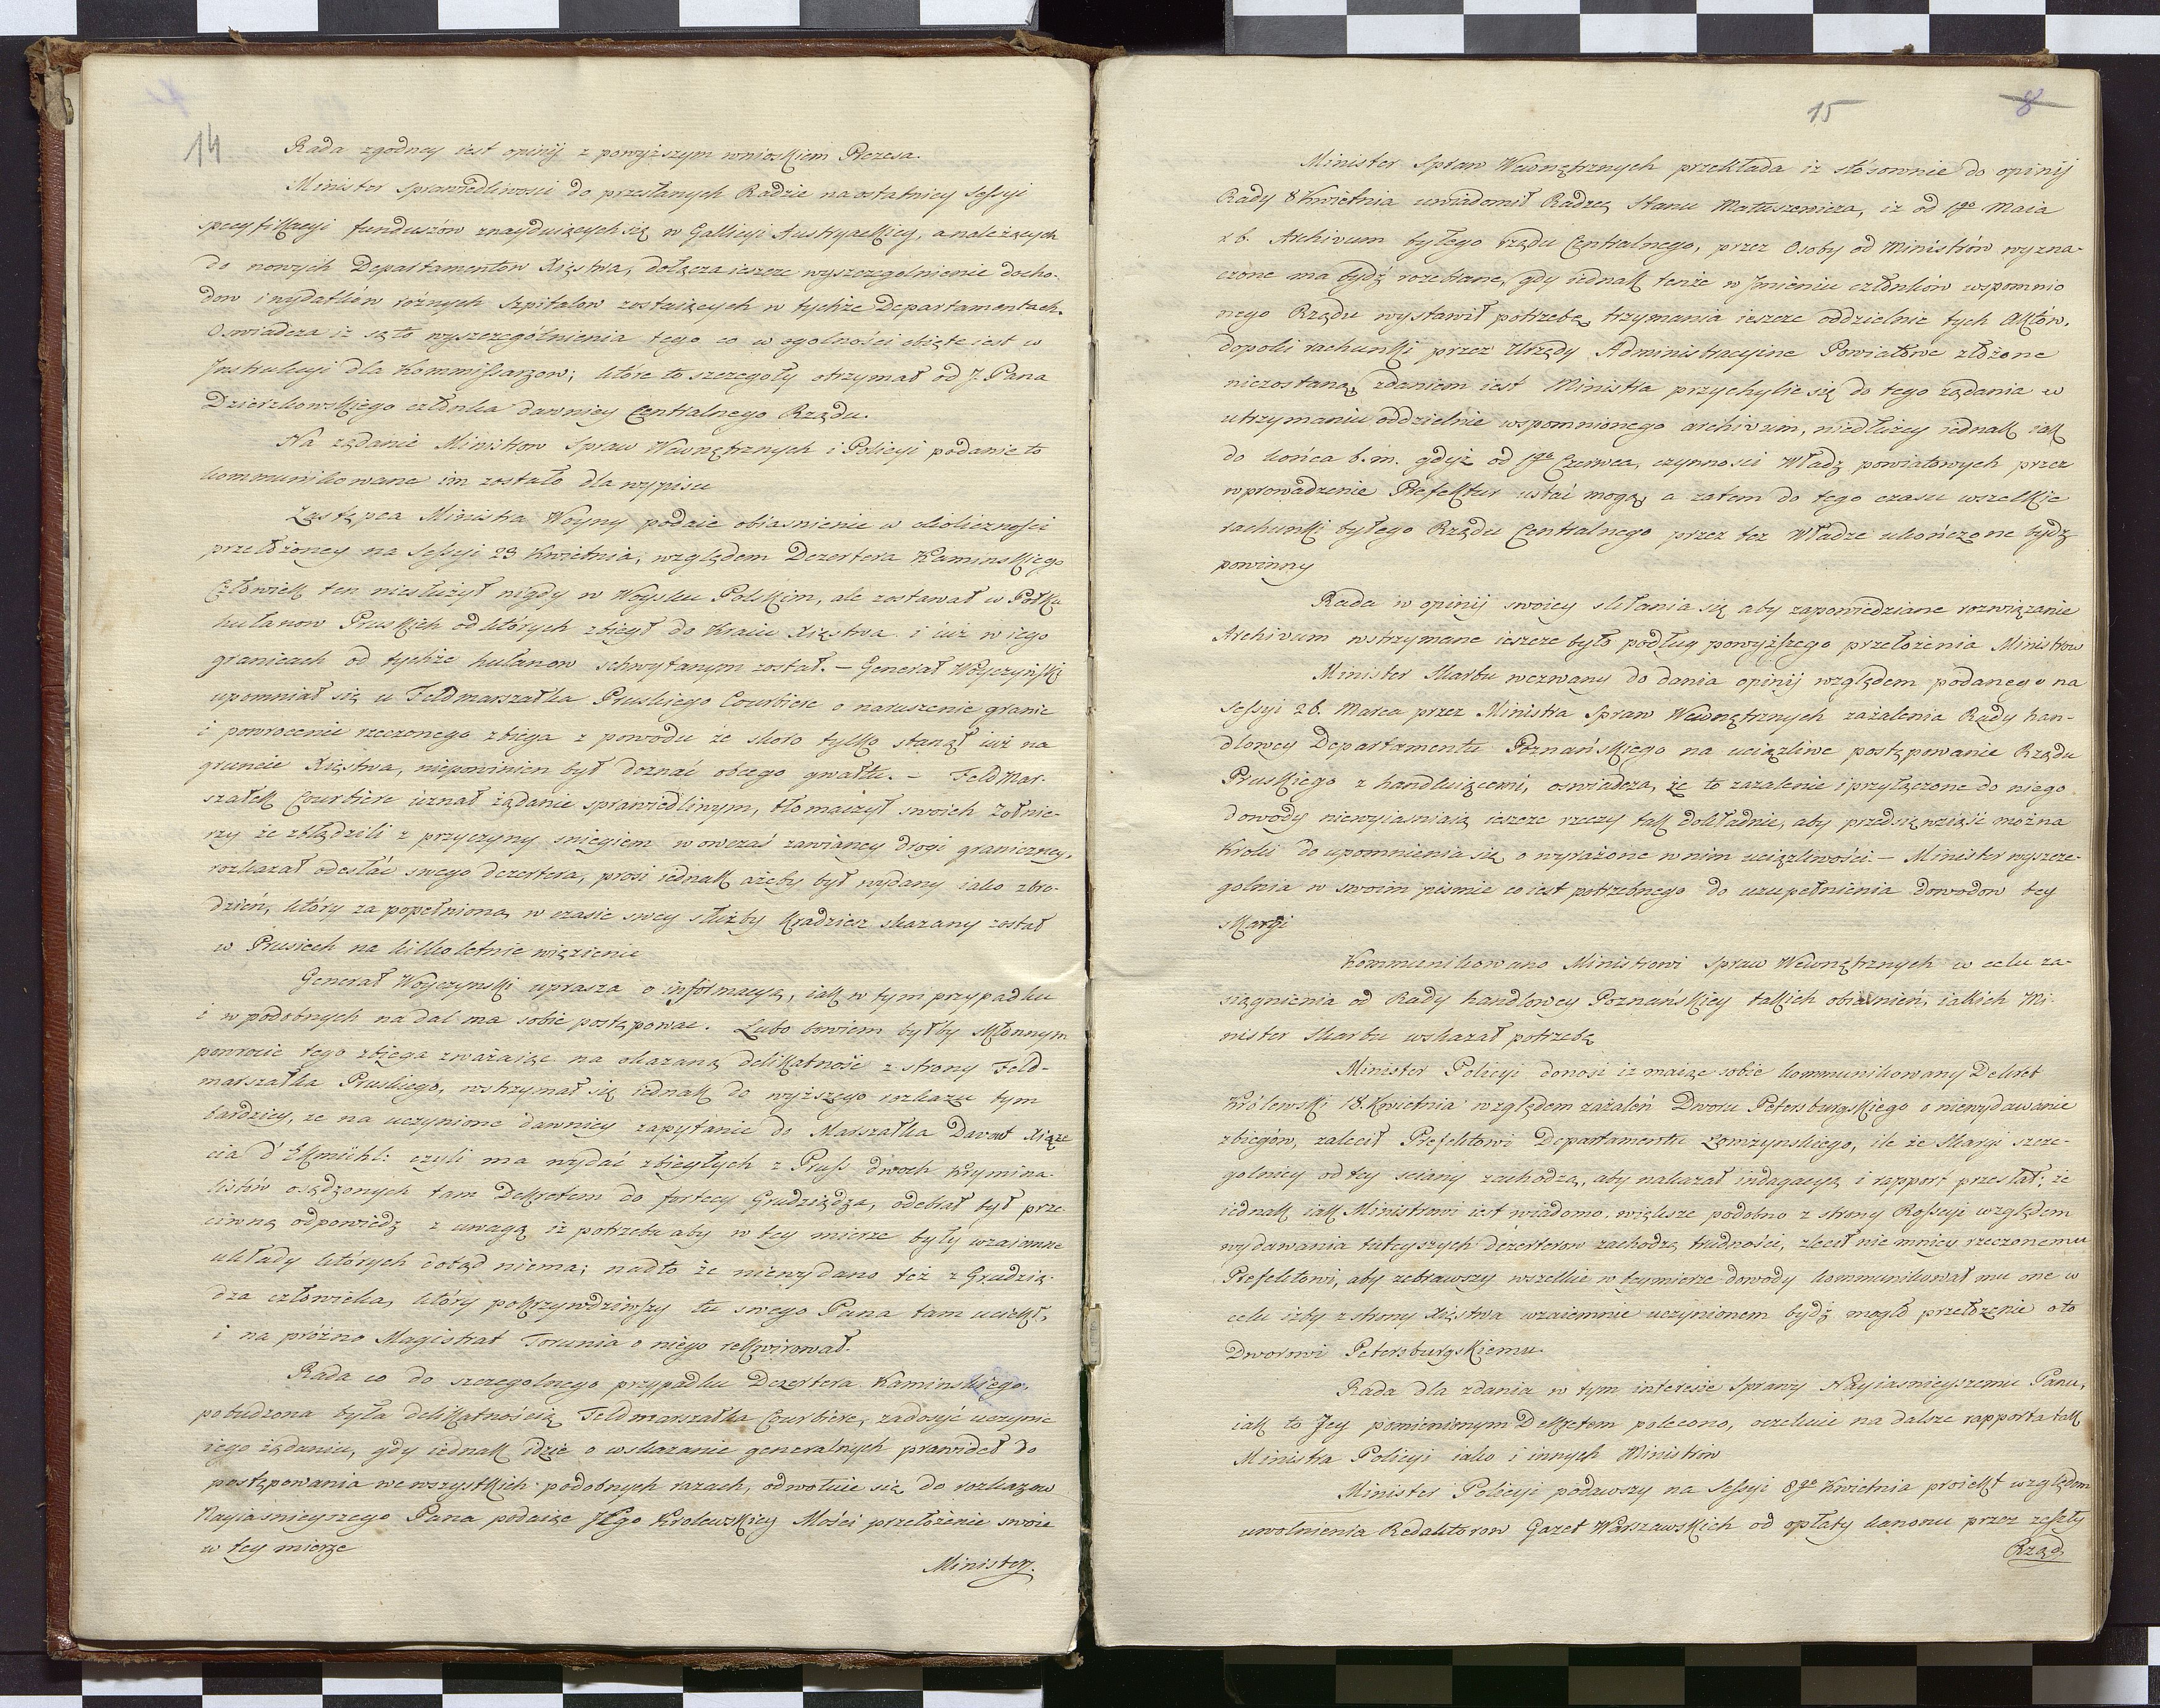 14
Rada zgodney iest opinij z powyższym wnioskiem Prezesa.
Minister sprawiedliwosci do przesłanych Radzie na ostatniey Sessyi
specyfikacyi funduszów znayduiących się w Gallicyi Austryackiey, a należących
do nowych Departamentow Xięstwa, dołącza ieszcze wyszczegolnienie docho-
dow i wydatków różnych Szpitalow zostaiących w tychże Departamentach.
Oswiadcza iż są to wyszczególnienia tego co w ogolności obięte iest w
Instrukcyi dla Kommissarzow; które to szczegoły otrzymał od J. Pana
Dzierzkowskiego członka dawniey Centralnego Rządu.
Na żądanie Ministrow Spraw Wewnętrznych i Policyi podanie to
kommunikowane im zostało dla wypisu
Zastępca Ministra Woyny podaie obiasnienie w okoliczności
przełożoney na Sessyi 23 Kwietnia, względem Dezertera Kaminskiego
Człowiek ten niesłużył nigdy w Woysku Polskim, ale zostawał w Połku
hułanow Pruskich od których zbiegł do Kraiu Xięstwa i iuż w iego
granicach od tychże hułanow schwytanym został. – Generał Woyczyński
upomniał się u Feldmarszałka Pruskiego Courbiere o naruszenie granic
i powrocenie rzeczonego zbiega z powodu że skoro tylko stanął iuż na
gruncie Xięstwa, niepowinien był doznać obcego gwałtu. – FeldMar-
szałek Courbiere uznał żądanie sprawiedliwym, tłomaczył swoich Żołnie-
rzy że zbłądzili z przyczyny sniegiem wowczas zawianey drogi graniczney,
rozkazał odesłać swego dezertera, prosi iednak ażeby był wydany iako zbro-
dzień, który za popełnioną w czasie swey służby kradzież skazany został
w Prusiech na kilkoletnie więzienie
Generał Woyczynski uprasza o informacyą, iak w tym przypadku
i w podobnych nadal ma sobie postępowac. Lubo bowiem byłby skłonnym
powrocic tego zbiega zważaiąc na okazaną delikatność z strony Feld-
marszałka Pruskiego, wstrzymał się iednak do wyższego rozkazu tym
bardziey, że na uczynione dawniey zapytanie do Marszałka Davout Xiąże
cia d'Ekmühl: czyli ma wydać zbiegłych z Pruss dwoch Krymina-
listów osądzonych tam Dekretem do fortecy Grudziądza, odebrał był prze-
ciwną odpowiedz z uwagą iż potrzeba aby w tey mierze były wzaiemne
układy których dotąd niema; nadto że niewydano też z Grudzią-
dza człowieka, który pokrzywdziwszy tu swego Pana tam uciekł,
i na próżno Magistrat Torunia o niego rekwirował.
Rada co do szczegolnego przypadku Dezertera Kaminskiego,
pobudzona była delikatnością Feldmarszałka Courbiere, zadosyć uczynic
iego żądaniu, gdy iednak idzie o wskazanie generalnych prawideł do
postępowania we wszystkich podobnych razach, odwołuie się do rozkazow
Nayiasnieyszego Pana podaiąc JEgo Krolewskiey Mości przełożenie swoie
w tey mierze
Minister.
15
8
Minister Spraw Wewnętrznych przekłada iż stósownie do opinij
Rady 8 Kwietnia uwiadomił Radzcę Stanu Matuszewicza, iż od 1go Maia
r. b. Archivum byłego rządu Centralnego, przez Osoby od Ministrów wyzna-
czone ma bydź rozebrane, gdy iednak tenże w Imieniu członków wspomnio
nego Rządu wystawił potrzebę trzymania ieszcze oddzielnie tych Aktów,
dopoki rachunki przez Urzędy Administracyine Powiatowe złożone
niezostaną, zdaniem iest Ministra przychylic się do tego żądania w
utrzymaniu oddzielnie wspomnionego archivum, niedłużey iednak iak
do końca b. m. gdyż od 1go Czerwca, czynnosci Władz powiatowych przez
wprowadzenie Prefektur ustać mogą, a zatem do tego czasu wszelkie
rachunki byłego Rządu Centralnego przez też Władze ukończone bydź
powinny
Rada w opinij swoiey skłania się aby zapowiedziane rozwiązanie
Archivum wstrzymane ieszcze było podług powyższego przełożenia Ministrow
Minister Skarbu wezwany do dania opinij względem podanego na
Sessyi 26. Marca przez Ministra Spraw Wewnętrznych zażalenia Rady han-
dlowey Departamentu Poznańskiego na uciążliwe postępowanie Rządu
Pruskiego z handluiącemi, oswiadcza, że to zażalenie i przyłączone do niego
dowody niewyiasniaią ieszcze rzeczy tak dokładnie, aby przedsięwziąść można
Kroki do upomnienia się o wyrażone w nim uciążliwości. – Minister wyszcze-
golnia w swoim pismie co iest potrzebnego do uzupełnienia dowodow tey
skargi
Kommunikowano Ministrowi Spraw Wewnętrznych w celu za-
siągnienia od Rady handlowey Poznańskiey takich obiasnień, iakich Mi-
nister Skarbu wskazał potrzebę
Minister Policyi donosi iż maiąc sobie kommunikowany Dekret
Królewski 18. Kwietnia względem zażaleń Dworu Petersburgskiego o niewydawanie
zbiegów, zalecił Prefektowi Departamentu Łomżynskiego, ile że skargi szcze-
golniey od tey sciany zachodzą, aby nakazał indagacyą i rapport przesłał; że
iednak iak Ministrowi iest wiadomo, większe podobno z strony Rossyi względem
wydawania tuteyszych dezerterow zachodzą trudności, zlecił nie mniey rzeczonemu
Prefektowi, aby zebrawszy wszelkie w teymierze dowody kommunikował mu one w
celu iżby z strony Xięstwa wzaiemnie uczynionem bydź mogło przełożenie o to
Dworowi Petersburgskiemu.
Rada dla zdania w tym interesie sprawy Nayiasnieyszemu Panu,
iak to Jey pomienionym Dekretem polecono, oczekuie na dalsze rapporta tak
Ministra Policyi iako i innych Ministrów
Minister Policyi podawszy na Sessyi 8go Kwietnia proiekt względem
uwolnienia Redaktorow Gazet Warszawskich od opłaty kanonu przez zeszły
Rząd